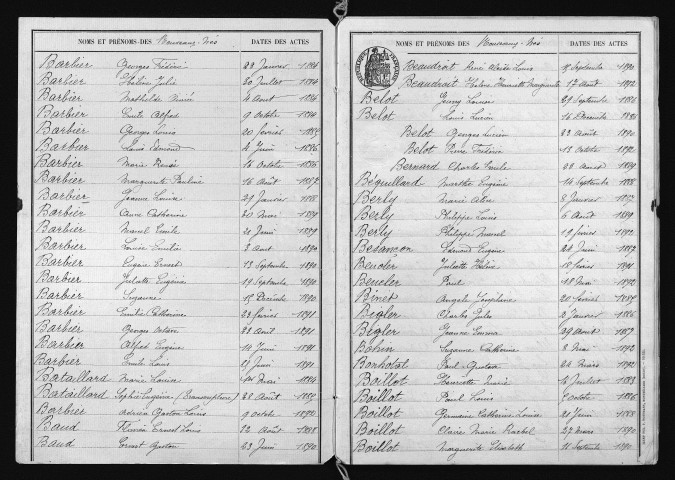 NOMS ET PRÉNOMS DES Nouveaux-Nés DATES DES ACTES
Barbier Georges 22 Janvier 1884
Barbier Hélène Julie 20 Juillet 1884
Barbier Mathilde 4 Aout 1884
Barbier Emile Alfred 9 Octobre 1884
Barbier Georges Louis 20 février 1885
Barbier Louis Edmond 4 Juin 1886
Barbier Marie Renée 16 Octobre 1886
Barbier Marguerite Pauline 16 Août 1887
Barbier Jeanne Louise 27 Janvier 1888
Barbier Anne Catherine 20 Mai 1889
Barbier Marcel Emile 21 Juin 1889
Barbier Louise Emilie 3 Aout 1890
Barbier Ernest 13 Septembre 1890
Barbier Juliette Eugénie 19 Septembre 1890
Barbier Suzanne 15 Décembre 1890
Barbier Emilie Catherine 23 février 1891
Barbier Georges 22 Avril 1891
Barbier Alfred Eugène 14 Juin 1891
Barbier Emile Louis 21 Juin 1891
Bataillard Marie Louise 14 Mai 1884
Bataillard Sophie Eugénie (Transcription) 22 Août 1885
Barbier Adrien Gaston Louis 9 Octobre 1892
Baud Ernest Louis 12 Août 1888
Baud Ernest Gaston 23 Juin 1890
NOMS ET PRÉNOMS DES Nouveaux-Nés DATES DES ACTES
Beaudroit René Louis Septembre 1890
Beaudroit Hélène Henriette Marguerite 17 Août 1892
Belot Louise 29 Septembre 1886
Belot Louis Lucien 16 Décembre 1888
Belot Georges Lucien 23 Août 1890
Belot Pierre Frédéric 13 Octobre 1892
Bernard Charles Emile 1889
Béguillard Marthe Eugénie 14 Septembre 1888
Berly Marie 8 Janvier 1887
Berly Philippe Louis 6 Août 1889
Berly Philippe Marcel 19 février 1892
Besançon Edmond Eugène 24 Juin 1887
Beucler Juliette Hélène 18 février 1891
Beucler Paul 18 Mai 1892
Binet Angèle Joséphine 20 février 1885
Bigler Charles Jules 2 Janvier 1886
Bigler Jeanne Emma 29 Août 1887
Bohin Suzanne Catherine 8 Mai 1892
Bonhotal Paul Gaston 24 Mars 1892
Boillot Henriette Marie 16 Juillet 1883
Boillot Paul Louis 7 Octobre 1886
Boillot Germaine Catherine Louise 21 Juin 1888
Boillot Claire Marie Rachel 27 Mars 1890
Boillot Marguerite Elisabeth 11 Septembre 1891